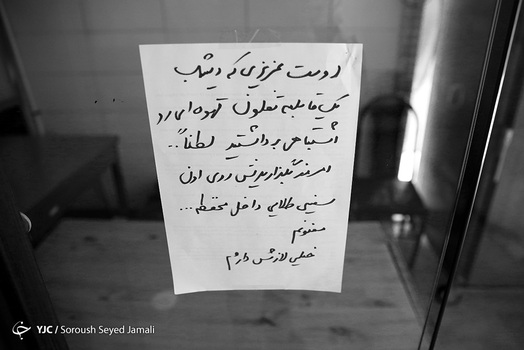 دوست عزیزی که دیشب
یک قابلمه تفلون قهوه ای رو
اشتباهی برداشتید لطفاً..
بگذاریدش روی اون
سینی طلایی داخل محوطه...
ممنونم
خیلی لازمش دارم
YJC / Soroush Seyed Jamali